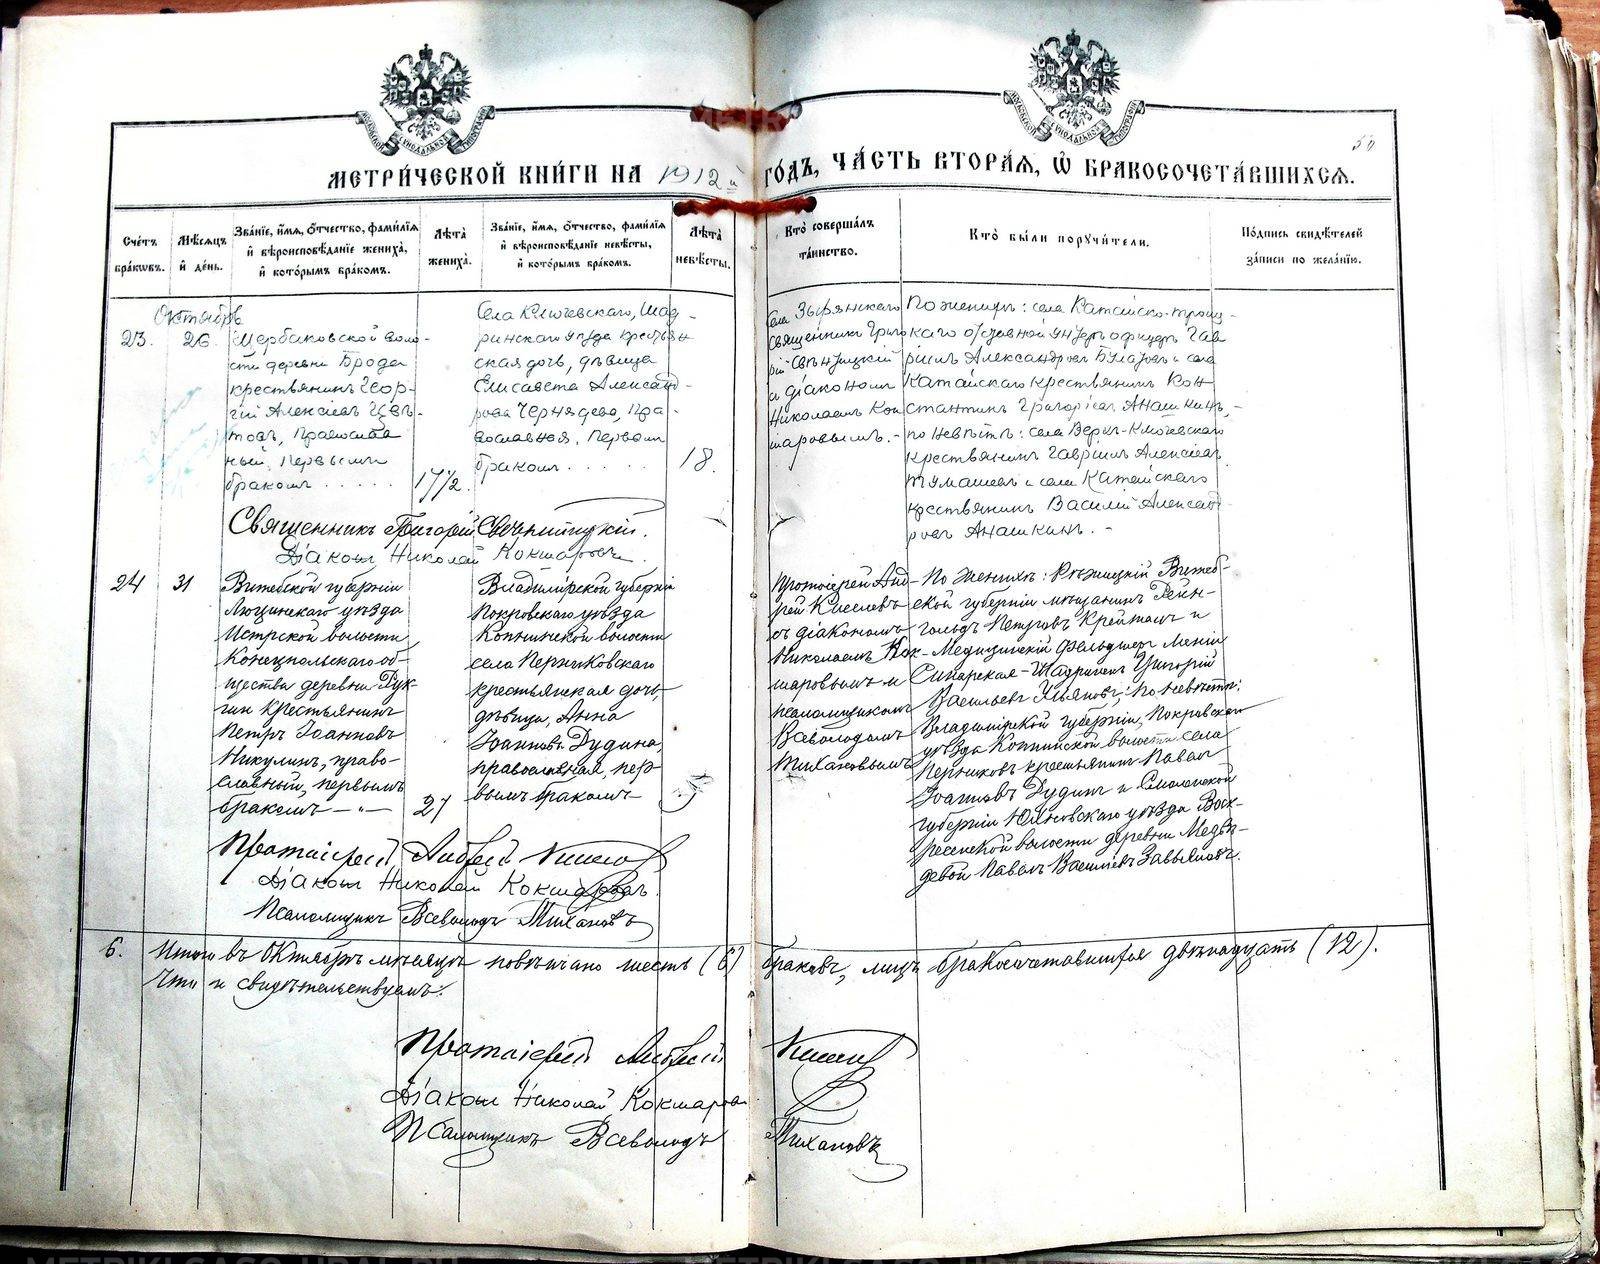 50
МЕТРИ́ЧЕСКОЙ КНИ́ГИ НА 1912й ГО́ДЪ, ЧА́СТЬ ВТОРА́Я, Ѡ БРАКОСОЧЕТА́ВШИХСЯ.
Сче́тъ бра́кѡвъ.
Мѣ́сяцъ и де́нь.
Зва́нїе, и́мя, о́тчество, фами́лїя
и вѣроисповѣ́данїе жениха̀,
и кото́рымъ бра́комъ.
Лѣ́та жениха̀.
Зва́нїе, и́мя, о́тчество, фами́лїя
и вѣроисповѣ́данїе невѣ́сты,
и кото́рымъ бра́комъ.
Лѣ́та невѣ́сты.
Кто̀ соверша́лъ
та́инство.
Кто̀ бы́ли поручи́тели.
По́дпись свидѣ́телей
за́писи по жела́нїю.
Октябрь
23.
26.
Щербаковской воло-
сти деревни Брода
крестьянинъ Геор-
гій Алексіевъ
православ
ный, первымъ
бракомъ . . . . .
17½.
Села Ключевскаго, Шад-
ринскаго уѣзда крестьян
ская дочь, дѣвица
Елисавета Александ-
рова Чернядева, пра-
вославная, первымъ
бракомъ . . . . .
18.
Села Зырянскаго
священникъ Григо
рій
и діакономъ
Николаемъ Кок
шаровымъ. -
По женихѣ: села Катайско-троиц-
каго унтеръ офицеръ Гав
рiилъ Александровъ Булатовъ и села
Катайскаго крестьянинъ Кон
стантинъ Григоріевъ Анашкинъ, -
по невѣстѣ: села Верхъ-Ключевскаго
крестьянинъ Гавріилъ Алексіевъ
Тумашевъ и села Катайскаго
крестьянинъ Василій Александ
ровъ Анашкинъ. -
Священникъ Григорій
Діаконъ Николай Кокшаровъ.
24
31
Витебской губерніи
Люцинскаго уѣзда
Истрской волости
Конецпольскаго об-
щества деревни
крестьянинъ
Петръ Іоанновъ
Никулинъ, право-
славный, первымъ
бракомъ - „ -
27
Владимірской губерніи
Покровскаго уѣзда
Копнинской волости
села Перниковскаго
крестьянская дочь
дѣвица, Анна
Іоаннова Дудина,
православная, пер-
вымъ бракомъ
Протоіерей Анд-
рей Киселевъ
съ діакономъ
Николаемъ Кок-
шаровымъ и
псаломщикомъ
Всеволодомъ
Тихановымъ
По женихѣ: Рѣжицкій Витеб-
ской губерніи мѣщанинъ Рейн-
гольдъ Петровъ Крейтамъ и
Медицинскій фельдшеръ линіи
Синарская-Шадринскъ Григорій
Васильевъ Ульяновъ; по невѣстѣ:
Владимірской губерніи, Покровскаго
уѣзда Копнинской волости села
Перниковъ крестьянинъ Павелъ
Іоанновъ Дудинъ и Смоленской
губерніи Юхновскаго уѣзда Воск-
ресенской волости деревни Медвѣ-
девой Павелъ Васильевъ Завьяловъ.
Протоіерей Андрей Киселевъ
Діаконъ Николай Кокшаровъ.
Псаломщикъ Всеволодъ Тихановъ
6. Итого въ Октябрѣ мѣсяцѣ повѣнчано шесть (6) браковъ, лицъ бракосочетавшихся двѣнадцать (12).
Что и свидѣтельствуемъ:
Протоіерей Андрей Киселевъ
Діаконъ Николай Кокшаровъ
Псаломщикъ Всеволодъ Тихановъ